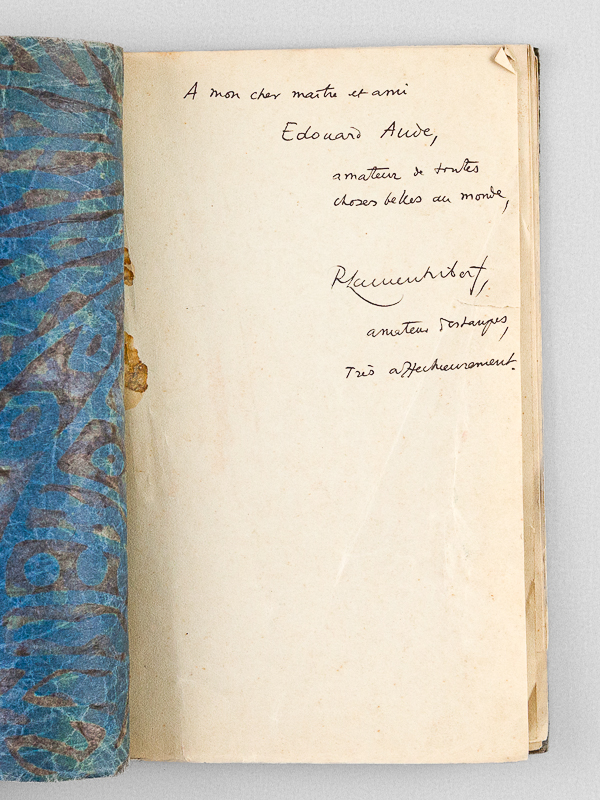 A mon cher maître et ami
Edouard Aude,
amateur de toutes
choses belles au monde,
amateur d'estampes,
Très affectueusement.